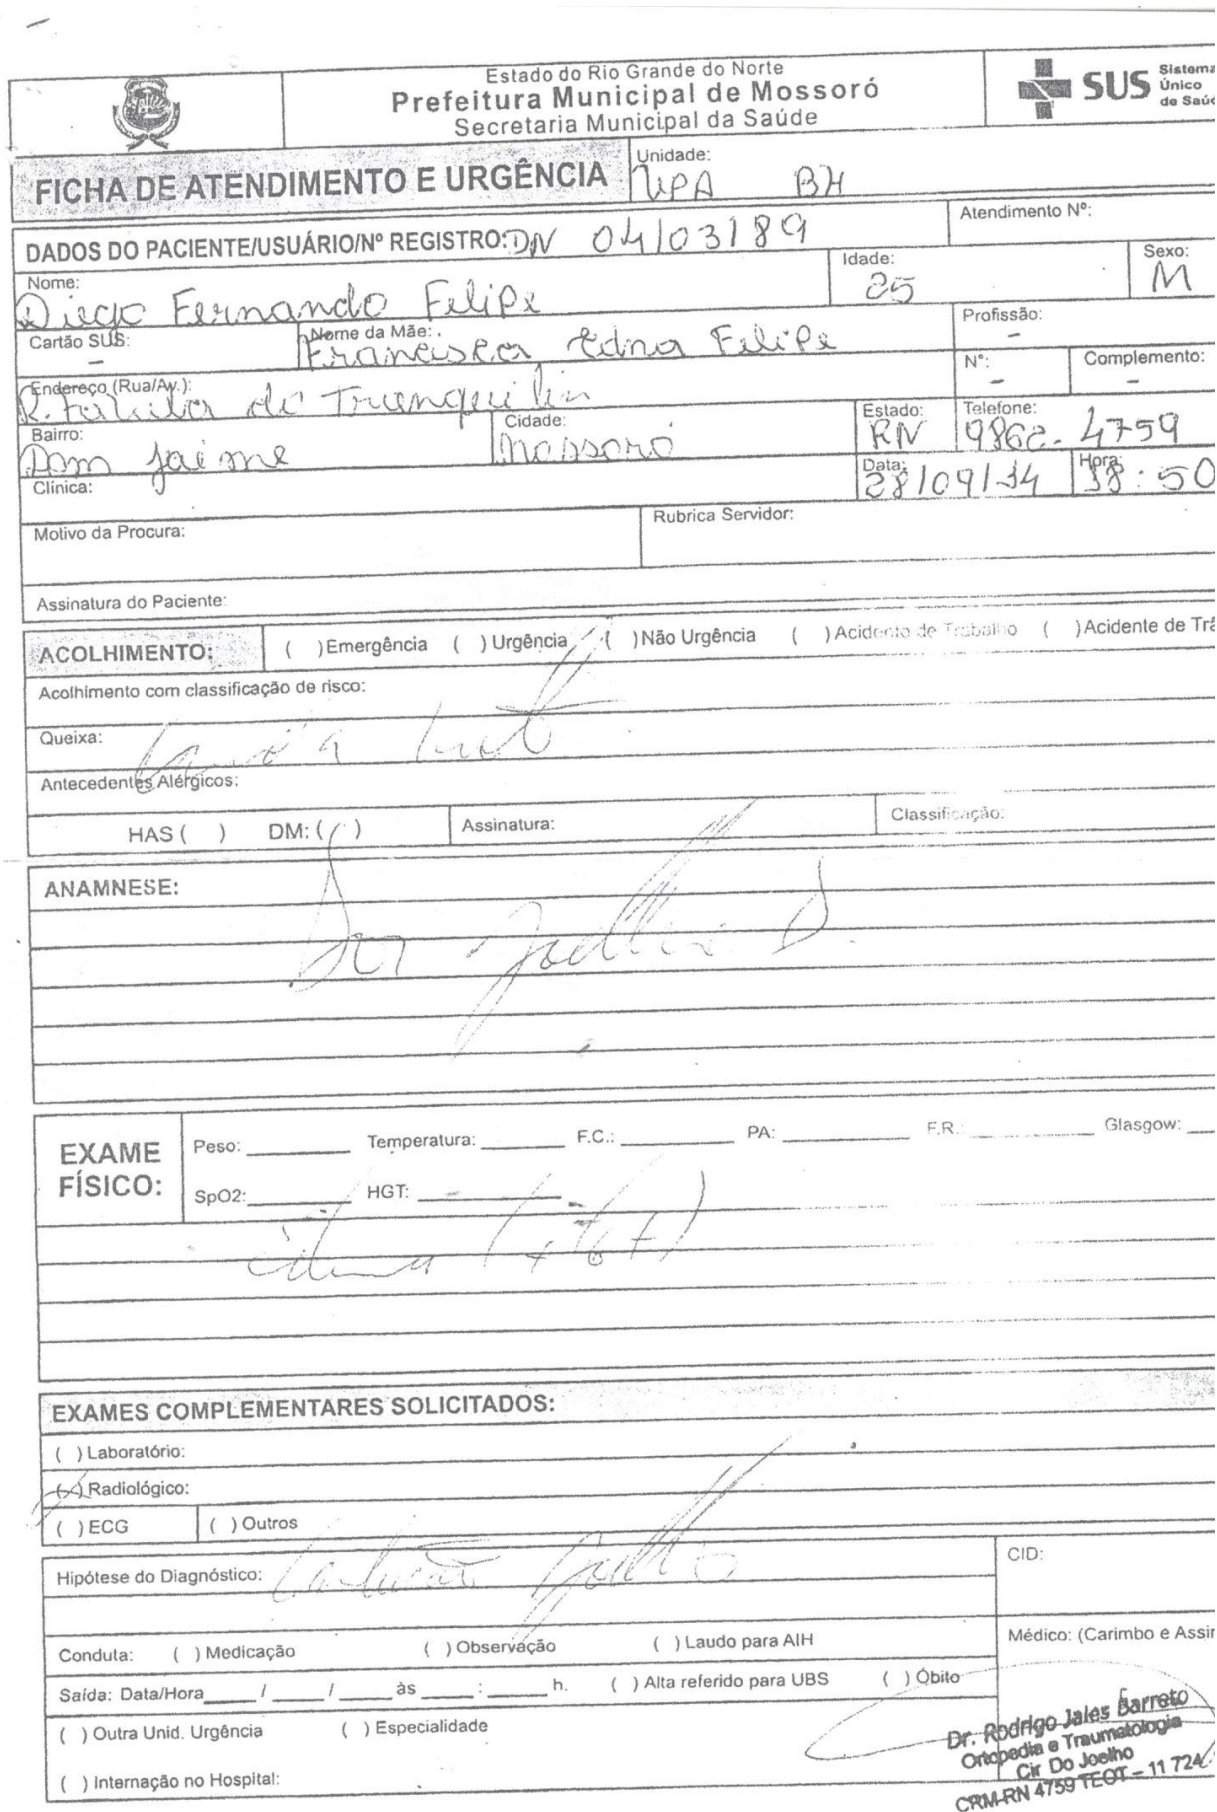 Estado do Rio Grande do Norte
Prefeitura Municipal de Mossoró
Secretaria Municipal da Saúde
SUS Sistema
Único
de Saúd
FICHA DE ATENDIMENTO E URGÊNCIA
Unidade:
UPA BH
DADOS DO PACIENTE/USUÁRIO/Nº REGISTRO: DN 04/03/89
Atendimento Nº:
Nome:
Diego Fernando Felipe
Idade:
25
Sexo:
M
Cartão SUS:
-
Nome da Mãe:
Francisca Edna Felipe
Profissão:
-
Endereço (Rua/Av.):
R.
Nº:
-
Complemento:
-
Bairro:
Dom Jaime
Cidade:
Mossoró
Estado:
RN
Telefone:
9862-4759
Clínica:
Data:
28/09/14
Hora:
18:50
Motivo da Procura:
Rubrica Servidor:
Assinatura do Paciente:
ACOLHIMENTO:
( ) Emergência ( ) Urgência ( ) Não Urgência ( ) Acidente de Trabalho ( ) Acidente de Trâ
Acolhimento com classificação de risco:
Queixa:
Antecedentes Alérgicos:
HAS ( ) DM: ( )
Assinatura:
Classificação:
ANAMNESE:
Dor Joelho D.
EXAME
FÍSICO:
Peso: Temperatura: F.C.: PA: F.R.: Glasgow:
SpO2: HGT:
EXAMES COMPLEMENTARES SOLICITADOS:
( ) Laboratório:
(X) Radiológico:
( ) ECG ( ) Outros
Hipótese do Diagnóstico: Contusão Joelho
CID:
Conduta: ( ) Medicação ( ) Observação ( ) Laudo para AIH
Médico: (Carimbo e Assin
Saída: Data/Hora / / às : h. ( ) Alta referido para UBS ( ) Óbito
( ) Outra Unid. Urgência ( ) Especialidade
( ) Internação no Hospital:
Dr. Rodrigo Jales Barreto
Ortopedia e Traumatologia
Cir Do Joelho
CRM-RN 4759 TEOT - 11 724